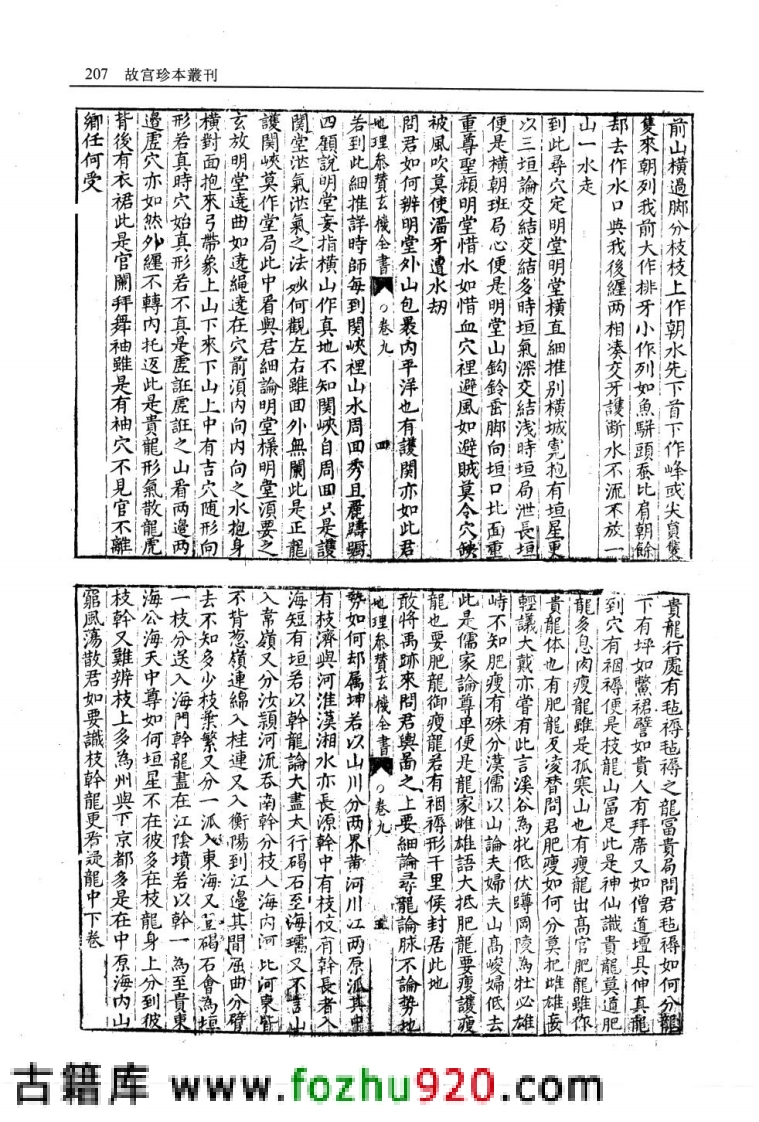 207 故宮珍本叢刊
前山橫過脚分枝枝上作朝水先下首下作峰或尖員隻
隻來朝列我前大作排牙小作列如魚駢頭蚕比肩朝餘
却去作水口與我後纒两相湊交牙護断水不流不放一
山一水走
到此尋穴定明堂明堂橫直細推别橫城寛抱有垣星東
以三垣論交結交結多時垣氣深交結浅時垣局泄長垣
便是橫朝班局心便是明堂山鈎鈴垂脚向垣口北面重
重尊聖顔明堂惜水如惜血穴裡避風如避賊莫令穴缺
被風吹莫使溜牙遭水刼
問君如何辨明堂外山包裹内平洋也有護関亦如此君
地理參贊玄機全書 卷九 四
若到此細推詳時師每到関峽裡山水周回秀且麗躊躇
四顧說明堂妄指橫山作真地不知関峽自周回只是護
関堂泄氣泄氣之法妙何觀左右雖回外無闌此是正龍
護関峽莫作堂局此中看與君細論明堂樣明堂須要之
玄放明堂遶曲如遶繩遶在穴前須内向内向之水抱身
橫對面抱來弓帶象上山下來下山上中有吉穴随形向
形若真時穴始真形若不真是虛誑虛誑之山看两邊两
邉虛穴亦如然外纒不轉内托返此是貴龍形氣散龍虎
背後有衣裙此是官闌拜舞袖雖是有袖穴不見官不離
鄉任何受
貴龍行處有毡褥毡褥之龍富貴局問君毡褥如何分龍
下有坪如鱉裙譬如貴人有拜席又如僧道壇具伸真龍
到穴有裀褥便是枝龍山富足此是神仙識貴龍莫道肥
龍多息肉瘦龍雖是孤寒山也有瘦龍出髙官肥龍雖作
貴龍體也有肥龍反凌替問君肥瘦如何分莫把雌雄妄
輕議大戴亦嘗有此言溪谷為牝低伏蹲岡陵為牡必雄
峙不知肥瘦有殊分漢儒以山論夫婦夫山髙峻婦低去
此是儒家論尊卑便是龍家雌雄語大抵肥龍要瘦護瘦
龍也要肥龍御瘦龍若有裀褥形千里侯封居此地
敢將禹跡來問君輿啚之上要細論尋龍論脉不論勢地
地理參贊玄機全書 卷九 五
勢如何却属坤若以山川分两界黄河川江两原派其中
有枝濟與河淮漢湘水亦長源幹中有枝枝有幹長者入
海短有垣若以幹龍論大盡太行碣石至海壖又不言山
入常嶺又分汝潁河流吞南幹分枝入海内河北河東皆
不背怱嶺連綿入桂連又入衡陽到江邊其間屈曲分臂
去不知多少枝葉繁又分一派入東海又登碣石會為垣
一枝分送入海門幹龍盡在江陰墳若以幹一為至貴東
海公海天中尊如何垣星不在彼多在枝龍身上分到彼
枝幹又難辨枝上多為州與下京都多是在中原海内山
窮風荡散君如要識枝幹龍更看疑龍中下卷
古籍库 www.fozhu920.com